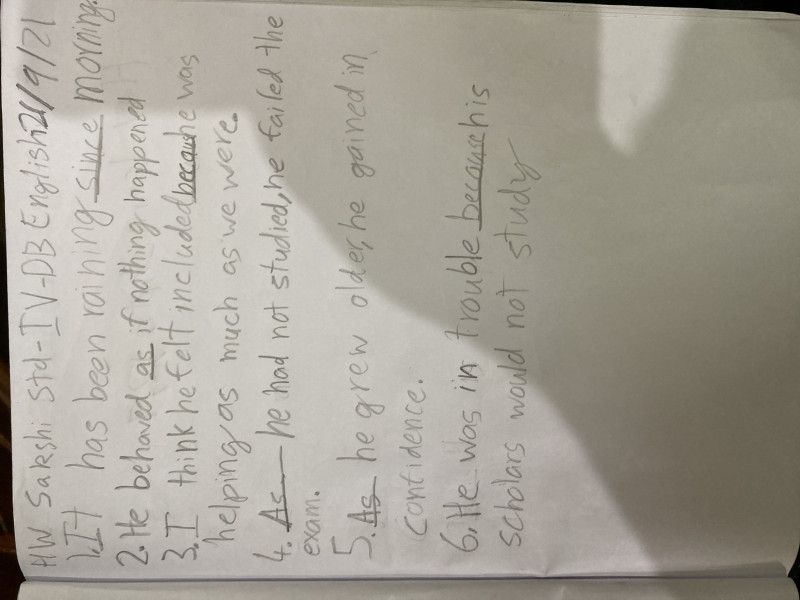 HW Sakshi Std-IV-DB English 21/9/21
1. It has been raining since morning.
2. He behaved as if nothing happened
3. I think he felt included because he was
helping as much as we were.
4. As he had not studied, he failed the
exam.
5. As he grew older, he gained in
confidence.
6. He was in trouble because his
scholars would not study